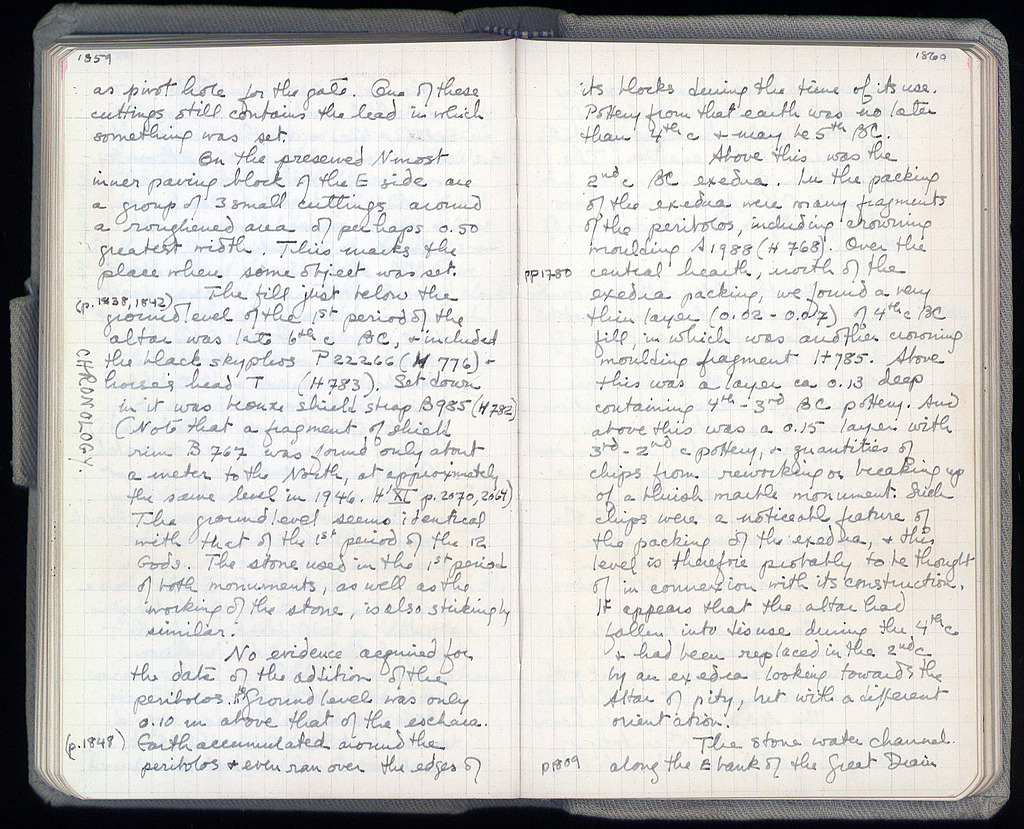 1859
as pivot hole for the gate. One of these
cuttings still contains the lead in which
something was set.
On the preserved Nmost
inner paving block of the E side are
a group of 3 small cuttings around
a roughened area of perhaps 0.50
greatest width. This marks the
place where some object was set.
(p. 1838, 1842) The fill just below the
ground level of the 1st period of the
altar was late 6th c BC, + included
the black skyphos P 22266 (H 776) +
horse's head T (H 783). Set down
in it was bronze shield strap B 985 (H 782)
CHRONOLOGY.
(Note that a fragment of shield
rim B 767 was found only about
a meter to the North, at approximately
the same level in 1946. H' XI p. 2070, 2064)
The ground level seems identical
with that of the 1st period of the 12
Gods. The stone used in the 1st period
of both monuments, as well as the
working of the stone, is also strikingly
similar.
No evidence acquired for
the date of the addition of the
peribolos. Its Ground level was only
0.10 m above that of the eschara.
(p. 1848) Earth accumulated around the
peribolos + even ran over the edges of
1860
its blocks during the time of its use.
Pottery from that earth was no later
than 4th c + may be 5th BC.
Above this was the
2nd c BC exedra. In the packing
of the exedra were many fragments
of the peribolos, including crowning
moulding A 1988 (H 768). Over the
pp 1780 central hearth, north of the
exedra packing, we found a very
thin layer (0.02 - 0.07) of 4th c BC
fill, in which was another crowning
moulding fragment H 785. Above
this was a layer ca 0.13 deep
containing 4th - 3rd BC pottery. And
above this was a 0.15 layer with
3rd - 2nd c pottery, + quantities of
chips from reworking or breaking up
of a bluish marble monument. Such
chips were a noticeable feature of
the packing of the exedra, + this
level is therefore probably to be thought
of in connexion with its construction.
It appears that the altar had
fallen into disuse during the 4th c.
+ had been replaced in the 2nd c
by an exedra looking towards the
Altar of Pity, but with a different
orientation.
The stone water channel
p 1809 along the E bank of the Great Drain